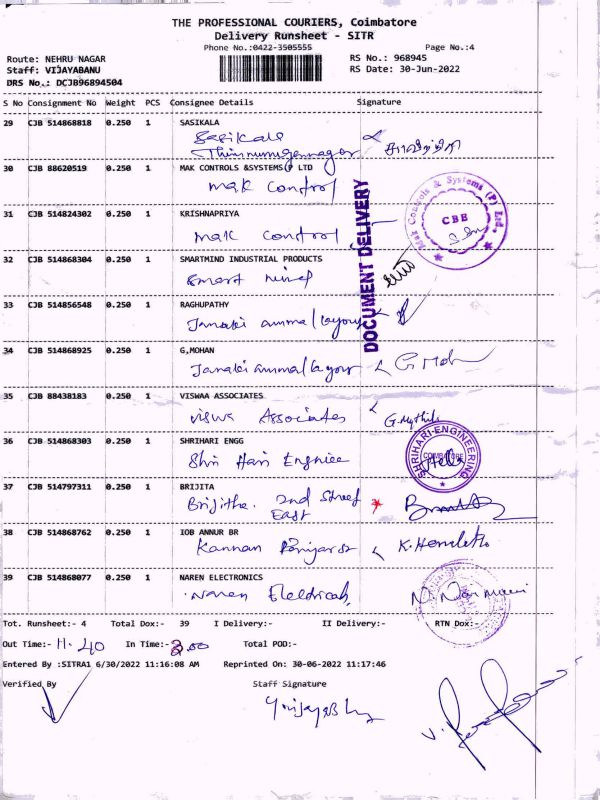 THE PROFESSIONAL COURIERS, Coimbatore
Delivery Runsheet - SITR
Phone No.:0422-3505555 Page No.:4
Route: NEHRU NAGAR RS No.: 968945
Staff: VIJAYABANU RS Date: 30-Jun-2022
DRS No.: DCJB96894504
S No Consignment No Weight PCS Consignee Details Signature
29 CJB 514868818 0.250 1 SASIKALA
Sasikala
30 CJB 88620519 0.250 1 MAK CONTROLS &SYSTEMS P LTD
Mak Control
31 CJB 514824302 0.250 1 KRISHNAPRIYA
Mak Control
Mak Controls & Systems (P) Ltd.
CBE
DOCUMENT DELIVERY
32 CJB 514868304 0.250 1 SMARTMIND INDUSTRIAL PRODUCTS
Smart
33 CJB 514856548 0.250 1 RAGHUPATHY
Janaki ammal layour
34 CJB 514868925 0.250 1 G,MOHAN
Janaki ammal layour G Moh
35 CJB 88438183 0.250 1 VISWAA ASSOCIATES
viswa Associates G.Mythili
36 CJB 514868303 0.250 1 SHRIHARI ENGG
Shri Hari
SHRIHARI ENGINEERING
COIMBATORE
37 CJB 514797311 0.250 1 BRIJITA
Brijitha. 2nd Street
East
38 CJB 514868762 0.250 1 IOB ANNUR BR
Kannan
39 CJB 514868077 0.250 1 NAREN ELECTRONICS
Naren
Tot. Runsheet:- 4 Total Dox:- 39 I Delivery:- II Delivery:- RTN Dox:-
Out Time:- 11.40 In Time:- 2.00 Total POD:-
Entered By :SITRA1 6/30/2022 11:16:08 AM Reprinted On: 30-06-2022 11:17:46
Verified By Staff Signature